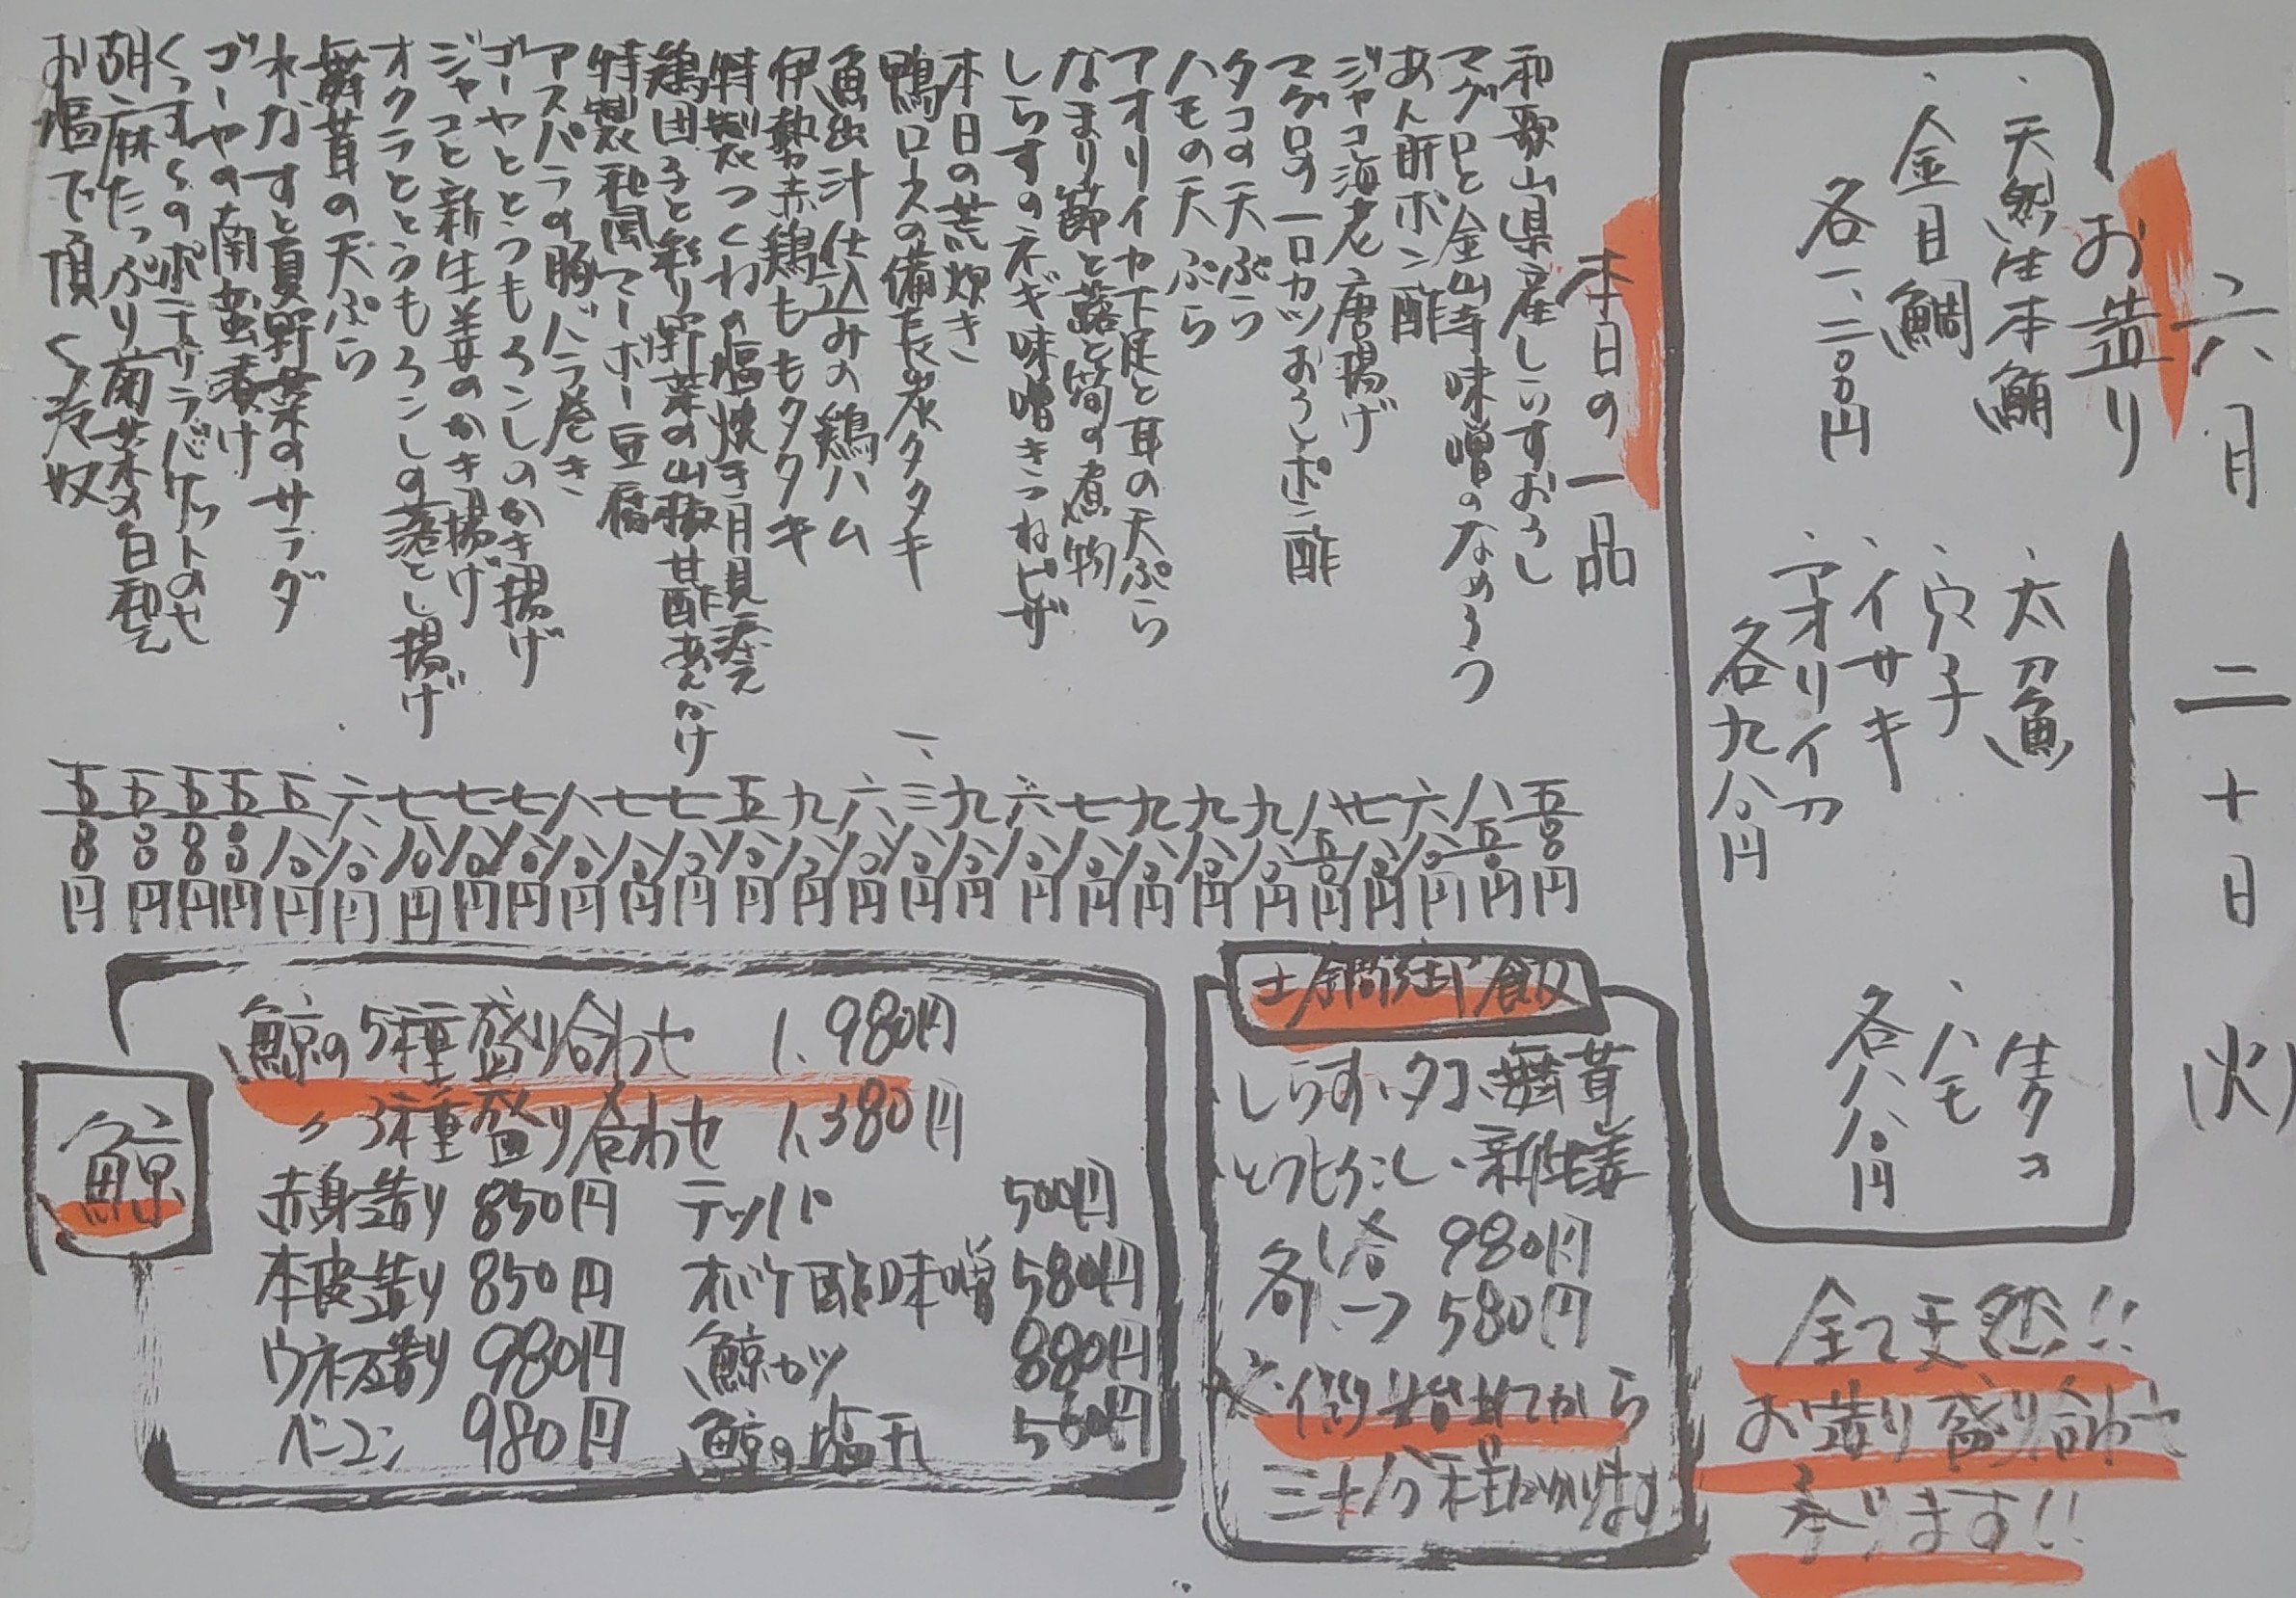 六月二十日(火)
お造り
・天然生本鮪
・金目鯛
各一、二〇〇円
・太刀魚
・穴子
・イサキ
・アオリイカ
各九八〇円
・生タコ
・ハモ
各八八〇円
全て天然!!
お造り盛り合わせ
承ります!!
本日の一品
和歌山県産しらすおろし 五八〇円
マグロと金山寺味噌のなめろう 八五〇円
あん肝ポン酢 六八〇円
ジャコ海老唐揚げ 七八〇円
マグロの一口カツおろしポン酢 八五〇円
タコの天ぷら 九八〇円
ハモの天ぷら 九八〇円
アオリイカ下足と耳の天ぷら 九八〇円
なまり節と蕗と筍の煮物 七八〇円
しらすのネギ味噌きつねピザ 六八〇円
本日の荒炊き 九八〇円
鴨ロースの備長炭タタキ 一、三八〇円
魚出汁仕込みの鶏ハム 六八〇円
伊勢赤鶏ももタタキ 九八〇円
特製つくねの塩焼き月見添え 五八〇円
鶏団子と彩り野菜の山椒甘酢あんかけ 七八〇円
特製和風マーボー豆腐 七八〇円
アスパラの豚バラ巻き 八八〇円
ゴーヤととうもろこしのかき揚げ 七八〇円
ジャコと新生姜のかき揚げ 七八〇円
オクラととうもろこしの落とし揚げ 七八〇円
舞茸の天ぷら 六八〇円
水なすと夏野菜のサラダ 五八〇円
ゴーヤの南蛮漬け 五〇〇円
くっすくのポテサラバケットのせ 五〇〇円
胡麻たっぷり南菜白和え 五〇〇円
お塩で頂く冷奴 五〇〇円
土鍋御飯
しらす、タコ、舞茸
とうもろこし、新生姜
各一合 980円
各ハーフ 580円
※御注文から
三十分程かかります
鯨
鯨の5種盛り合わせ 1,980円
〃 3種盛り合わせ 1,380円
赤身造り 850円
本皮造り 850円
ウネス造り 980円
ベーコン 980円
テッパ 500円
オバケ酢味噌 580円
鯨カツ 880円
鯨の塩干 560円